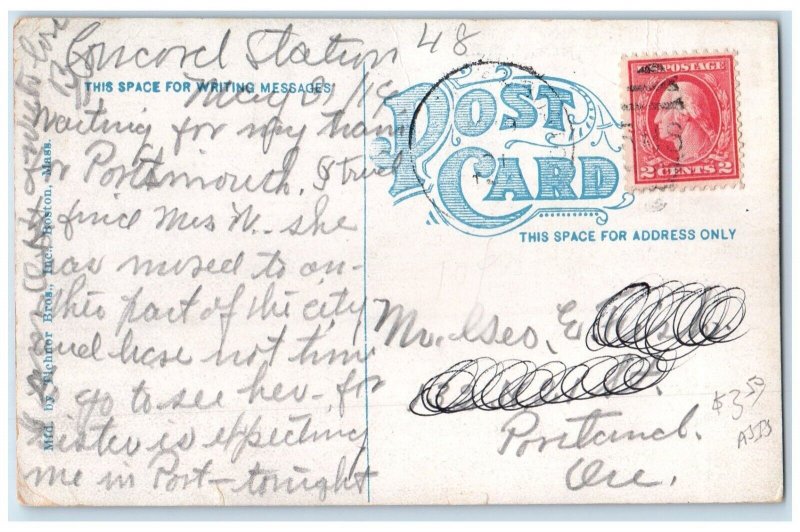 Concord Station
48
THIS SPACE FOR WRITING MESSAGES
May 8, /16
Waiting for my train
for Portsmouth. I tried
find Mrs N. she
has moved to an-
other part of the city
and have not time
to go to see her - for
sister is expecting
me in Port - tonight
Mfd. by Tichnor Bros., Inc., Boston, Mass.
POST CARD
U.S. POSTAGE
2 CENTS 2
THIS SPACE FOR ADDRESS ONLY
Mr. Geo. E.
Portland.
Ore.
$3.50